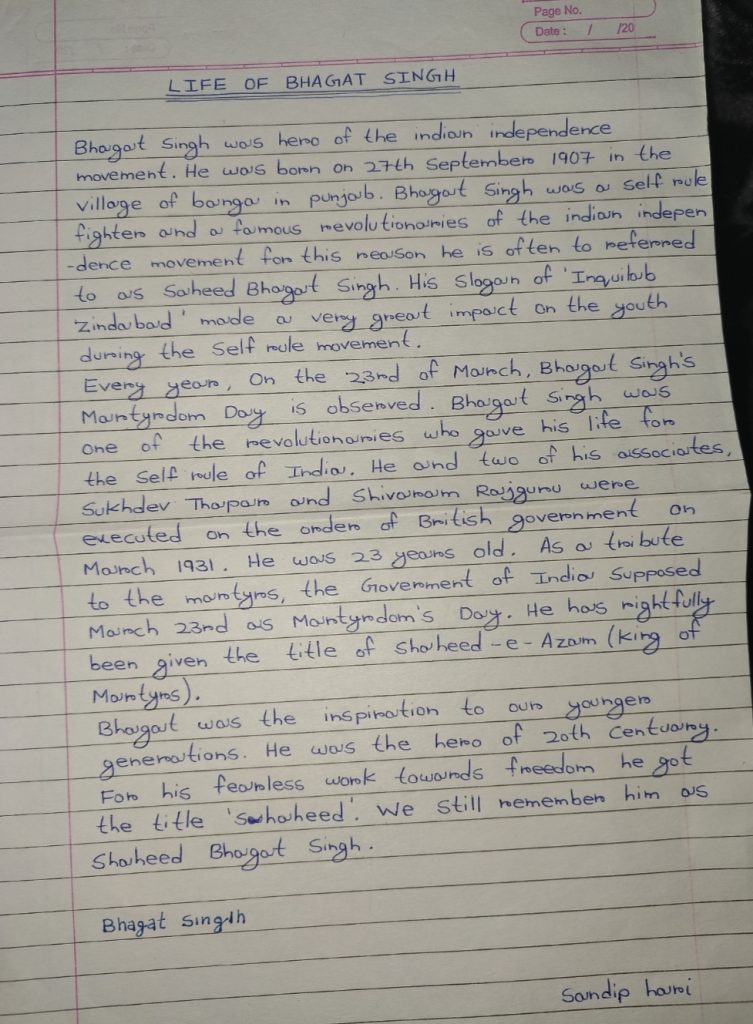 Page No.
Date : / /20
LIFE OF BHAGAT SINGH
Bhagat Singh was hero of the indian independence
movement. He was born on 27th September 1907 in the
village of banga in punjab. Bhagat Singh was a Self rule
fighter and a famous revolutionaries of the indian indepen
-dence movement for this reason he is often to referred
to as Saheed Bhagat Singh. His Slogan of 'Inquilab
Zindabad' made a very great impact on the youth
during the Self rule movement.
Every year, On the 23rd of March, Bhagat Singh's
Martyrdom Day is observed. Bhagat Singh was
one of the revolutionaries who gave his life for
the Self rule of India. He and two of his associates,
Sukhdev Thapar and Shivaram Rajguru were
executed on the order of British government on
March 1931. He was 23 years old. As a tribute
to the martyrs, the Goverment of India Supposed
March 23rd as Martyrdom's Day. He has rightfully
been given the title of Shaheed-e-Azam (King of
Martyrs).
Bhagat was the inspiration to our younger
generations. He was the hero of 20th Centuary.
For his fearless work towards freedom he got
the title 'Shaheed'. We Still remember him as
Shaheed Bhagat Singh.
Bhagat Singh
Sandip hari